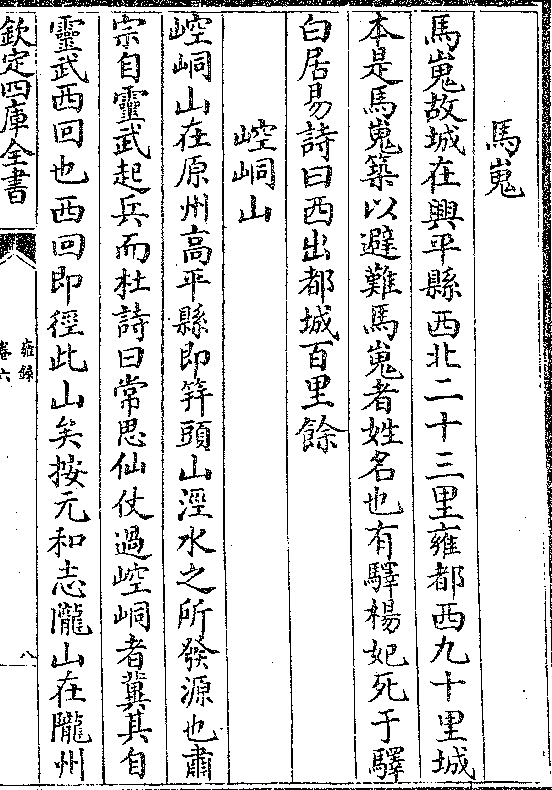 馬嵬
馬嵬故城在興平縣西北二十三里雍都西九十里城
本是馬嵬築以避難馬嵬者姓名也有驛楊妃死于驛
白居易詩曰西出都城百里餘
崆峒山
崆峒山在原州高平縣即笄頭山涇水之所發源也肅
宗自靈武起兵而杜詩曰常思仙仗過崆峒者冀其自
靈武西回也西回即徑此山矣按元和志隴山在隴州
欽定四庫全書
雍錄
卷六
八